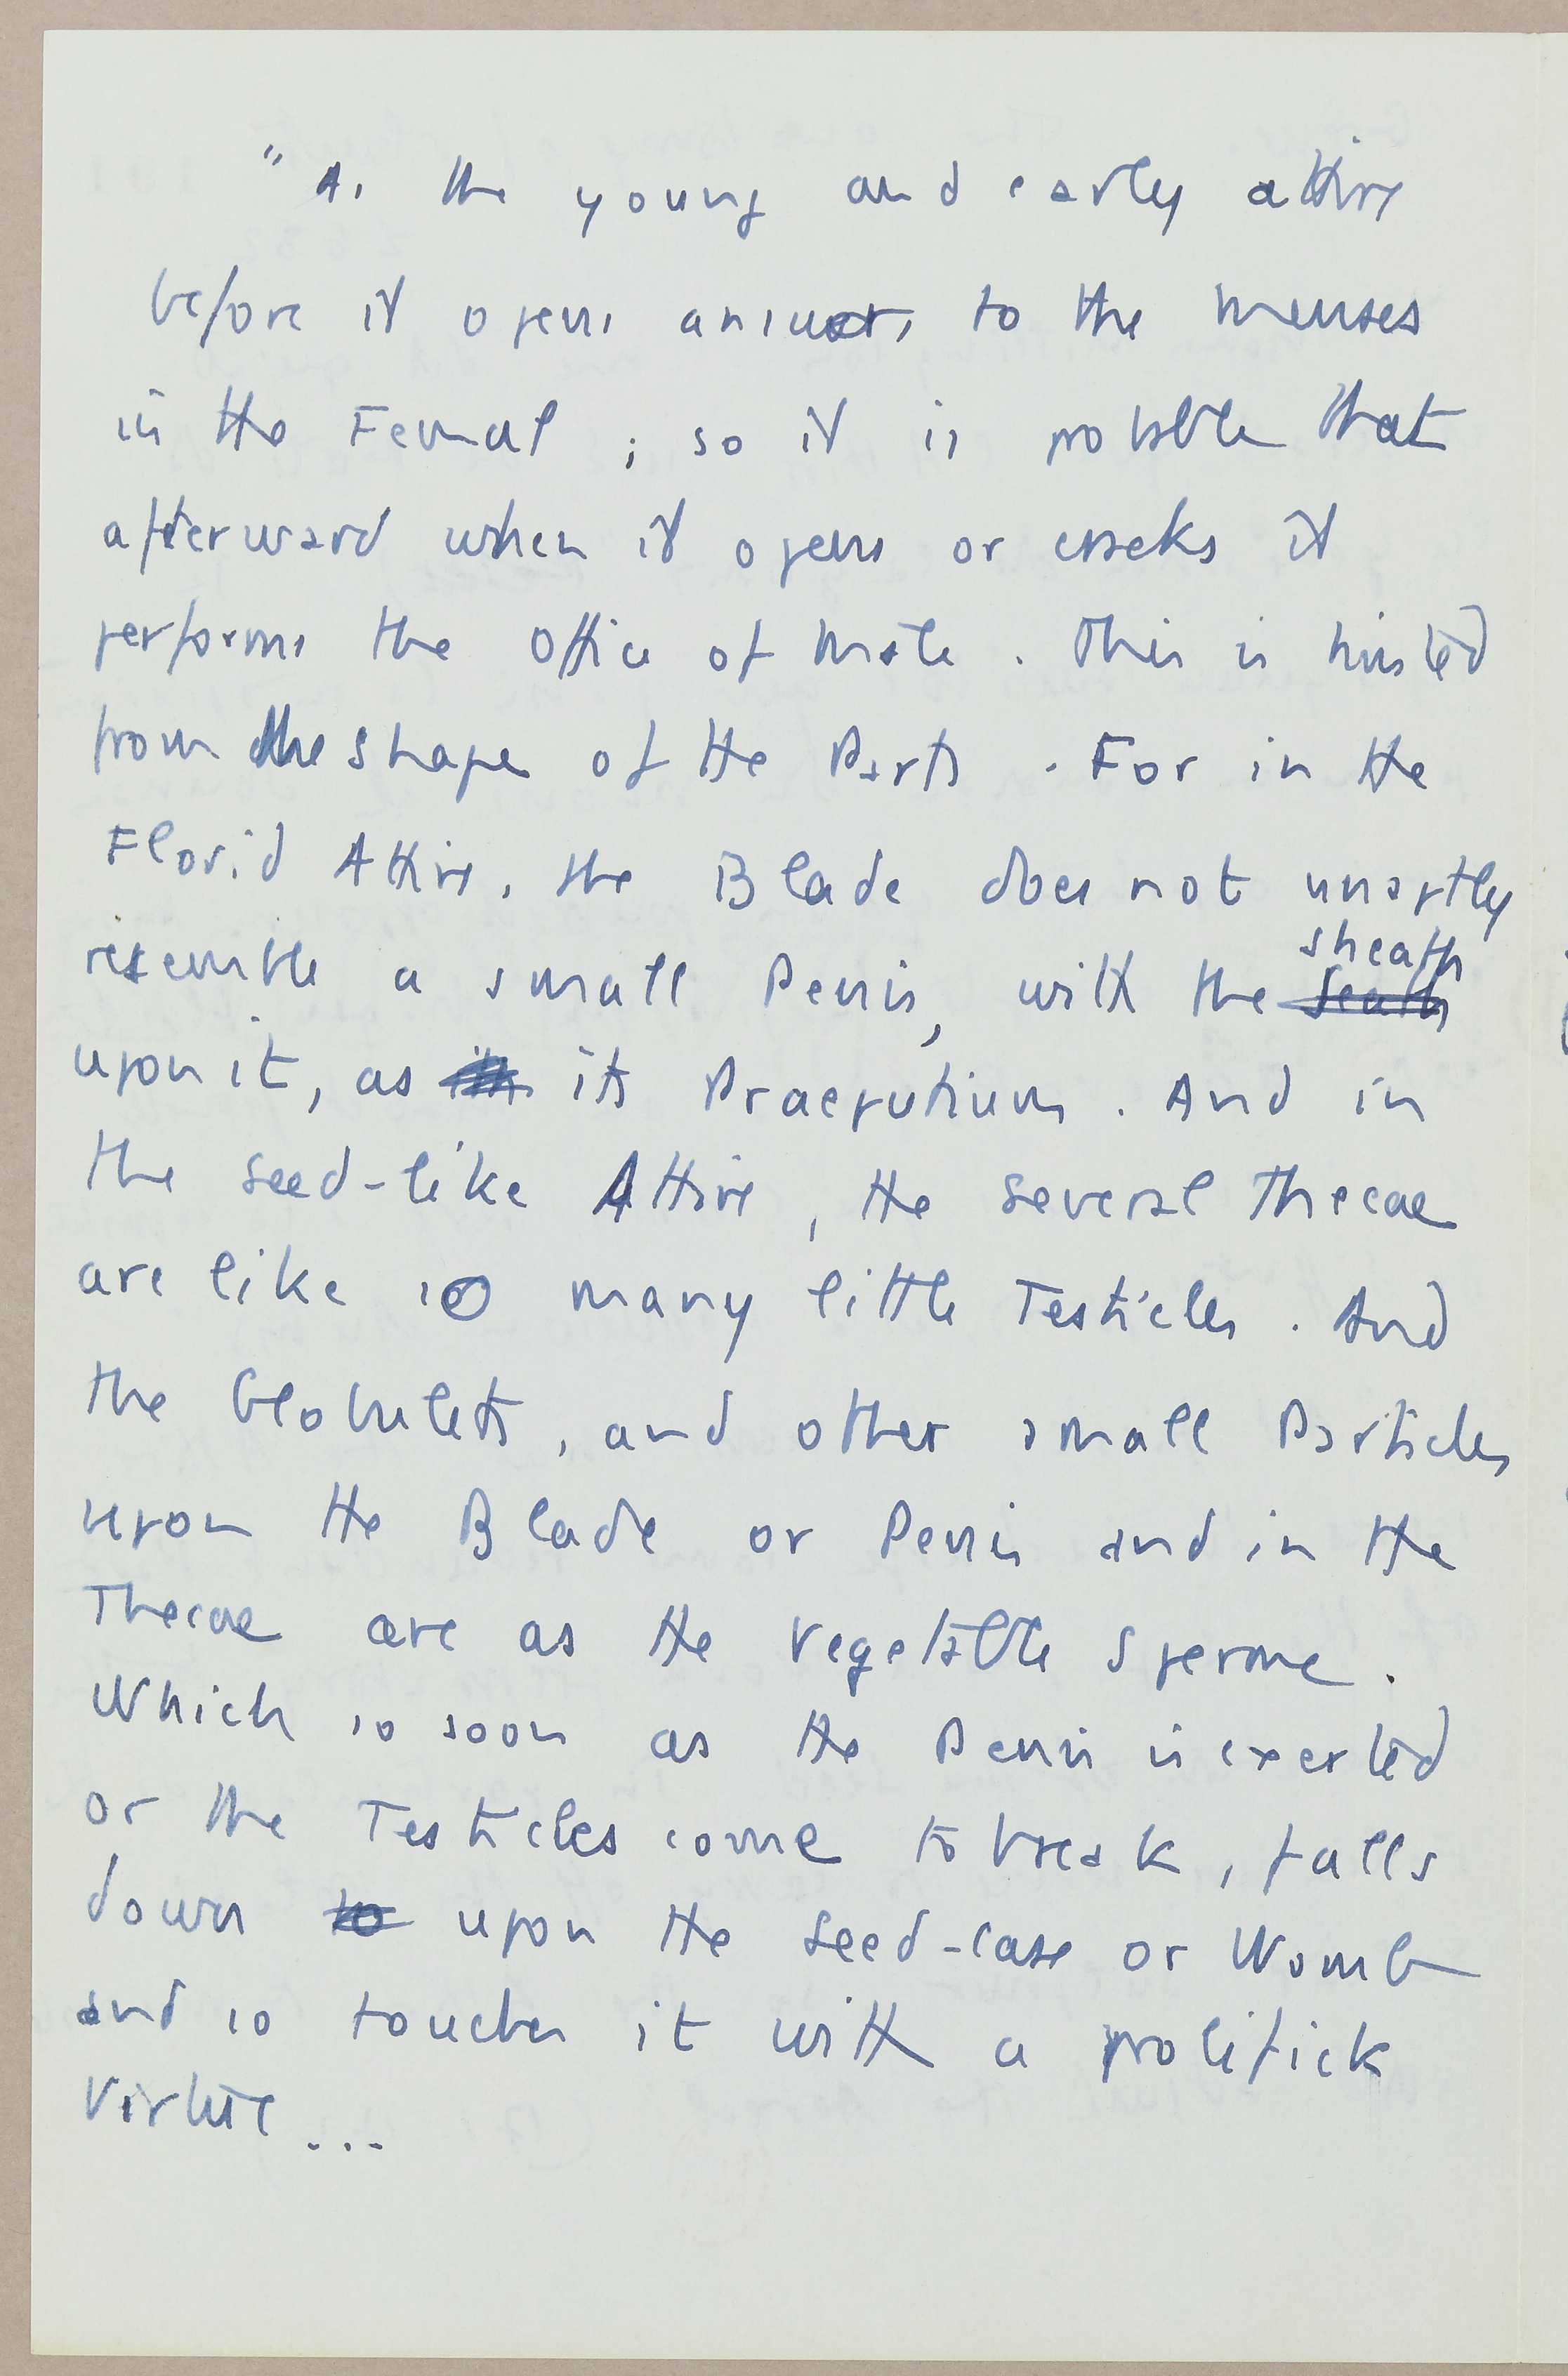 " As the young and early attire
before it opens answers to the menses
in the Femal ; so it is probable that
afterward when it opens or cracks it
performs the Office of Male . This is hinted
from the shape of the Parts . For in the
Florid Attire, the Blade does not unaptly
resemble a small Penis, with the sheath
upon it, as its Praeputium . And in
the seed-like Attire , the several Thecae
are like so many little Testicles . And
the Globulets, and other small Particles
upon the Blade or Penis and in the
Thecae are as the Vegetable Sperme .
Which so soon as the Penis is exerted
or the Testicles come to break , falls
down upon the seed-case or Womb
and so touches it with a prolifick
Virtue ...